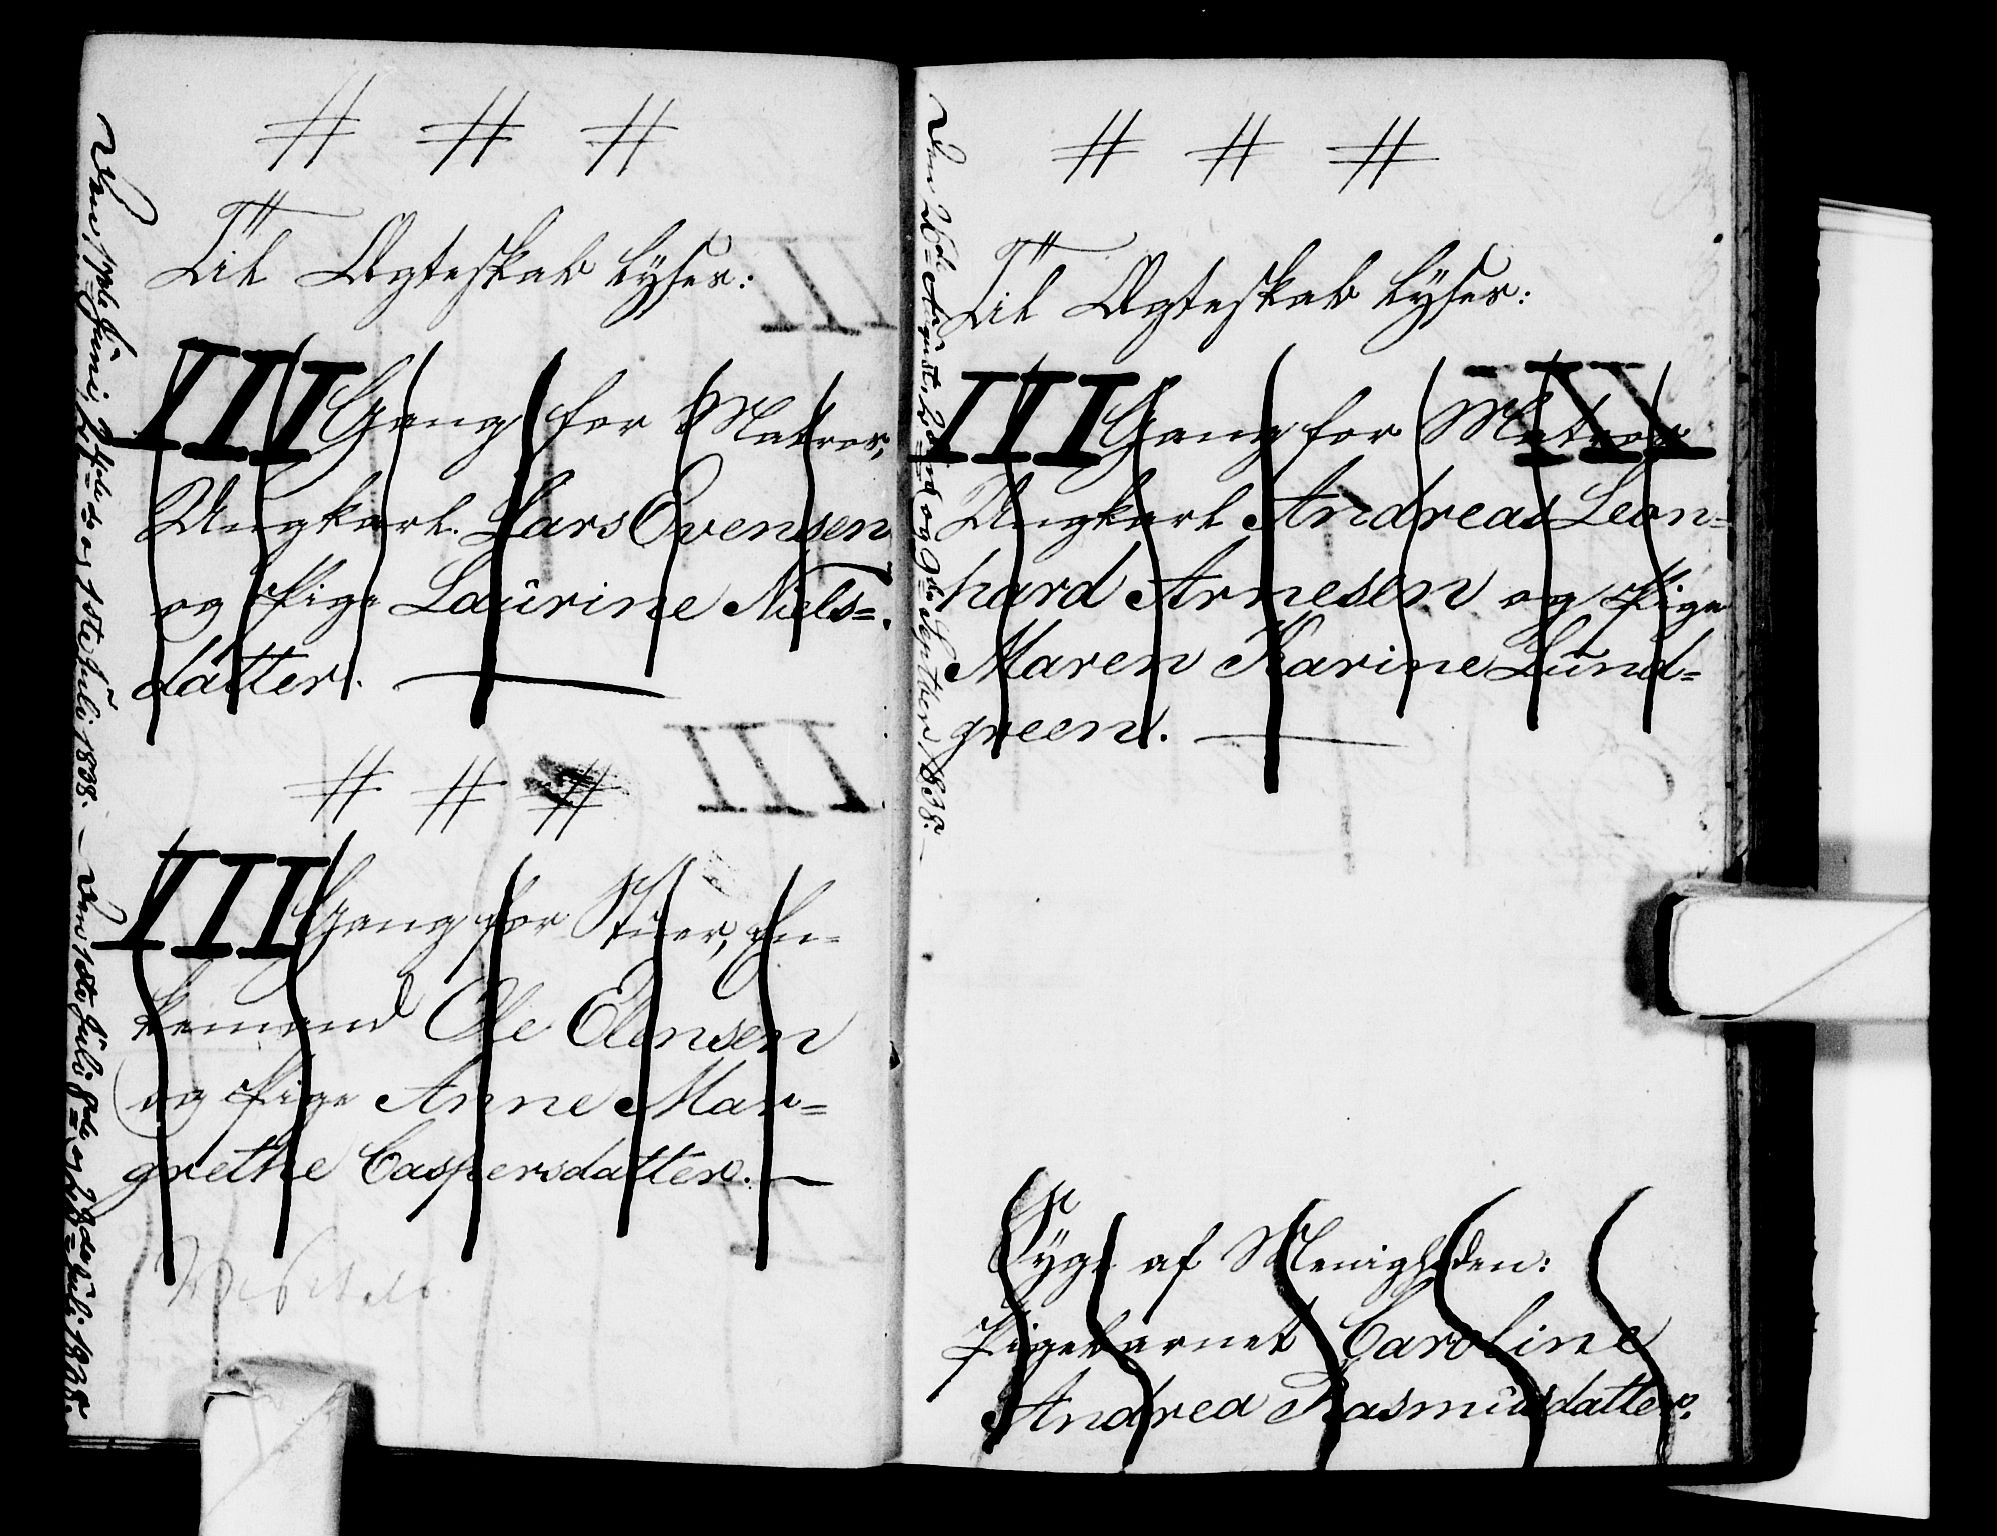 # # #
Til Ægteskab lyses:
III Gang for Matros,
Ungkarl Lars Evensen
og Pige Laurine Niels=
datter.
# # #
III Gang for Stuer, En=
kemand Ole Ellensen
og Pige Anne Mar=
grethe Caspersdatter.
Den 17de Juni, 24de og 1ste Juli 1838. — Den 1ste Juli, 8de og 22de Juli 1838.
# # #
Til Ægteskab lyses:
III Gang for Matros
Ungkarl Andreas Leon=
hard Arnesen og Pige
Maren Karine Lund=
green.
Den 26de August, 2den og 9de Septber 1838.
Syge af Menigheden:
Pigebarnet Caroline
Andrea Rasmusdatter.